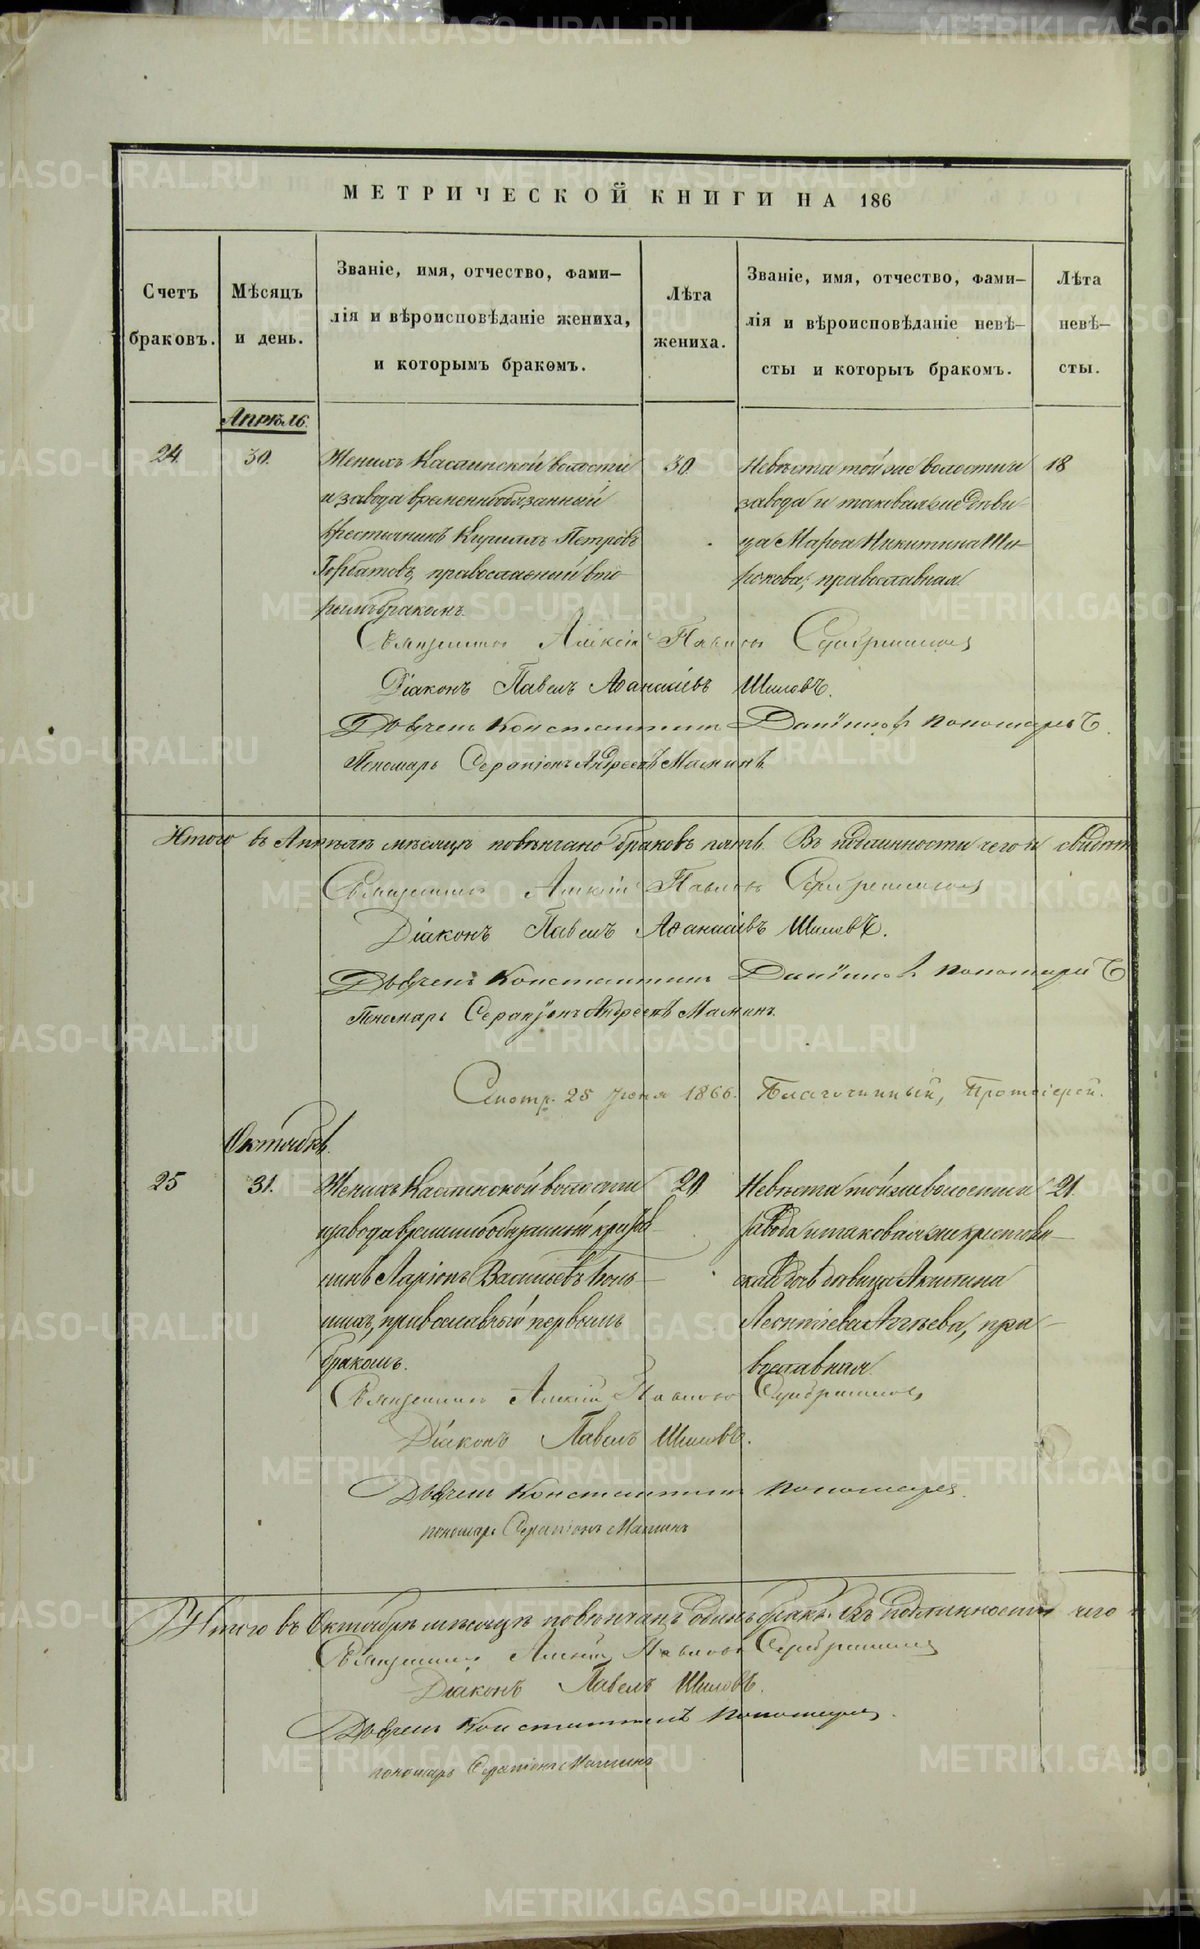 МЕТРИЧЕСКОЙ КНИГИ НА 186
Счетъ браковъ.
Мѣсяцъ и день.
Званіе, имя, отчество, фами-
лія и вѣроисповѣданіе жениха,
и которымъ бракомъ.
Лѣта жениха.
Званіе, имя, отчество, фами-
лія и вѣроисповѣданіе невѣ-
сты и которыъ бракомъ.
Лѣта невѣ-
сты.
Апрѣль.
24.
30.
Женихъ Каслинской волости
и завода временнообязанный
крестьянинъ Кириллъ Петровъ
Горбатовъ, православный вто
рымъ бракомъ.
30
Невѣста той же волости и
завода и таковая же дѣви
ца Марѳа Никитина Ши
рокова, православная.
18
Священникъ Алексій Павловъ
Діаконъ Павелъ Аѳанасіевъ Шиловъ.
Дьячекъ Константинъ Пономаревъ.
Пономарь Серапіонъ Андреевъ Маминъ.
Итого въ Апрѣлѣ мѣсяцѣ повѣнчано браковъ пять. Въ подлинности чего и
Священникъ Алексій Павловъ
Діаконъ Павелъ Аѳанасіевъ Шиловъ.
Дьячекъ Константинъ Пономаревъ
Пономарь Серапіонъ Андреевъ Маминъ.
Смотр. 25 Іюня 1866. Благочинный, Протоіерей.
Октябрь.
25
31.
Женихъ Каслинской волости
и завода временнообязанный крестья
нинъ Ларіонъ Васильевъ
православный первымъ
бракомъ.
20
Невѣста той же волости и
завода и таковая же крестьян
ская дочь дѣвица Акилина
Леонтіева Агѣева, пра
вославная.
21.
Священникъ Алексій Павловъ
Діаконъ Павелъ Шиловъ.
Дьячекъ Константинъ Пономаревъ.
пономарь Серапіонъ Маминъ
Итого въ Октябрѣ мѣсяцѣ повѣнчанъ одинъ бракъ. Въ подлинности чего
Священникъ Алексій Павловъ
Діаконъ Павелъ Шиловъ.
Дьячекъ Константинъ Пономаревъ.
пономарь Серапіонъ Маминъ
METRIKI.GASO-URAL.RU